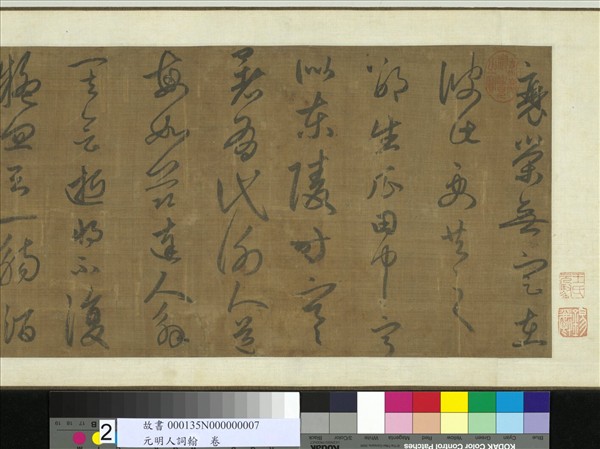 衰榮無定在
彼此更共之
邵生瓜田中寧
似東陵時寒
暑有代謝人道
每如茲達人解
其會逝將不復
疑忽與一觴酒
2
故書 000135N000000007
元明人詞翰 卷
KODAK Color Control Patches